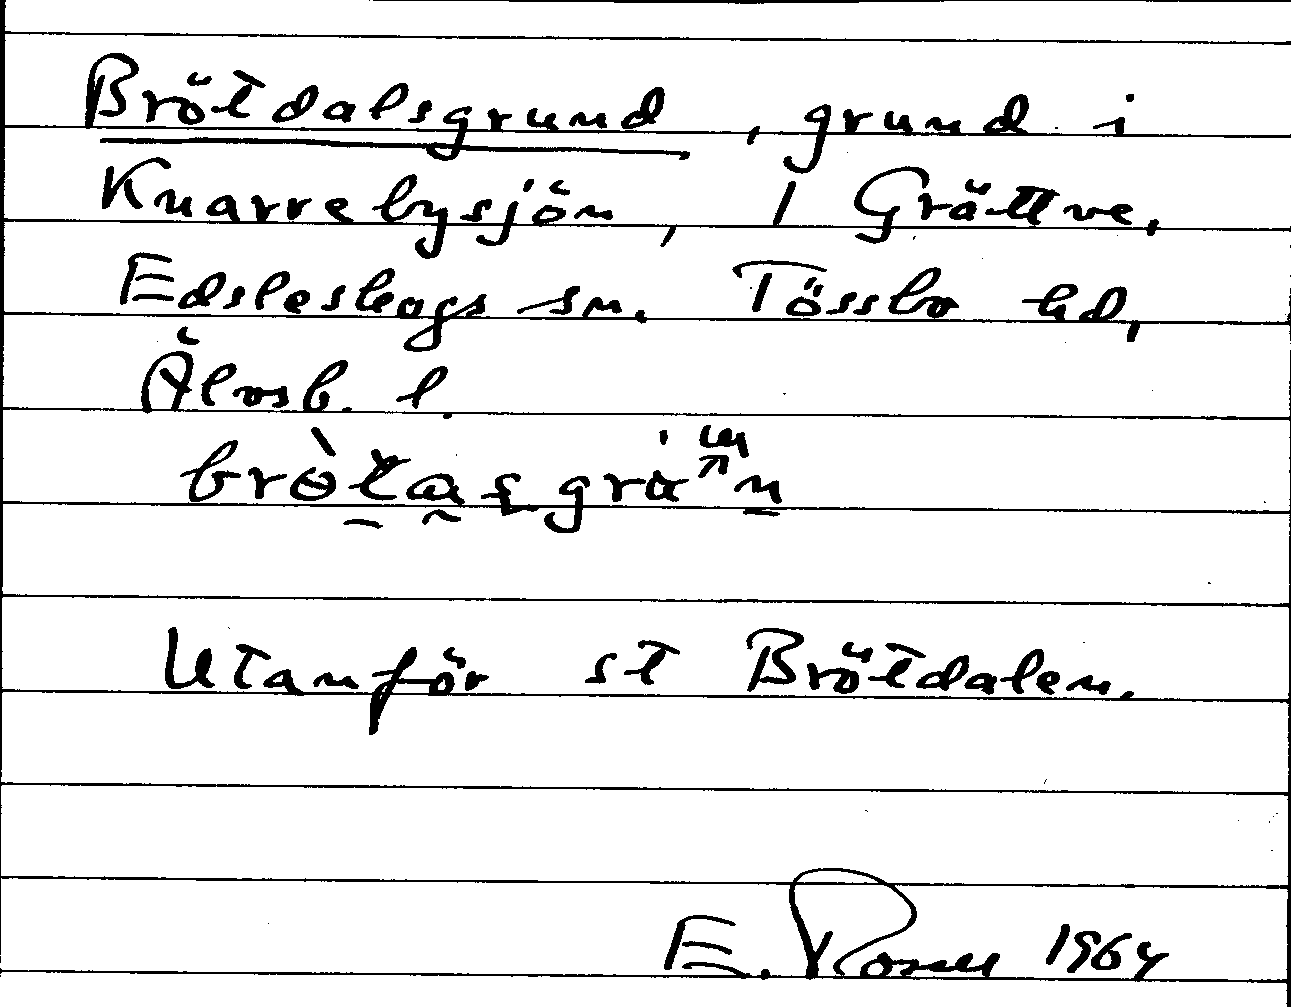 Brötdalsgrund, grund i
Knarrebysjön, 1 Grättve,
Edsleskogs sn. Tössbo hd,
Älvsb. l.
Utanför st Brötdalen.
E. 1964